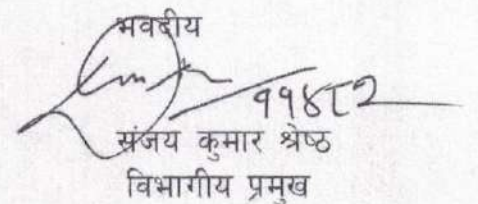 भवदीय
११४८२
संजय कुमार श्रेष्ठ
विभागीय प्रमुख